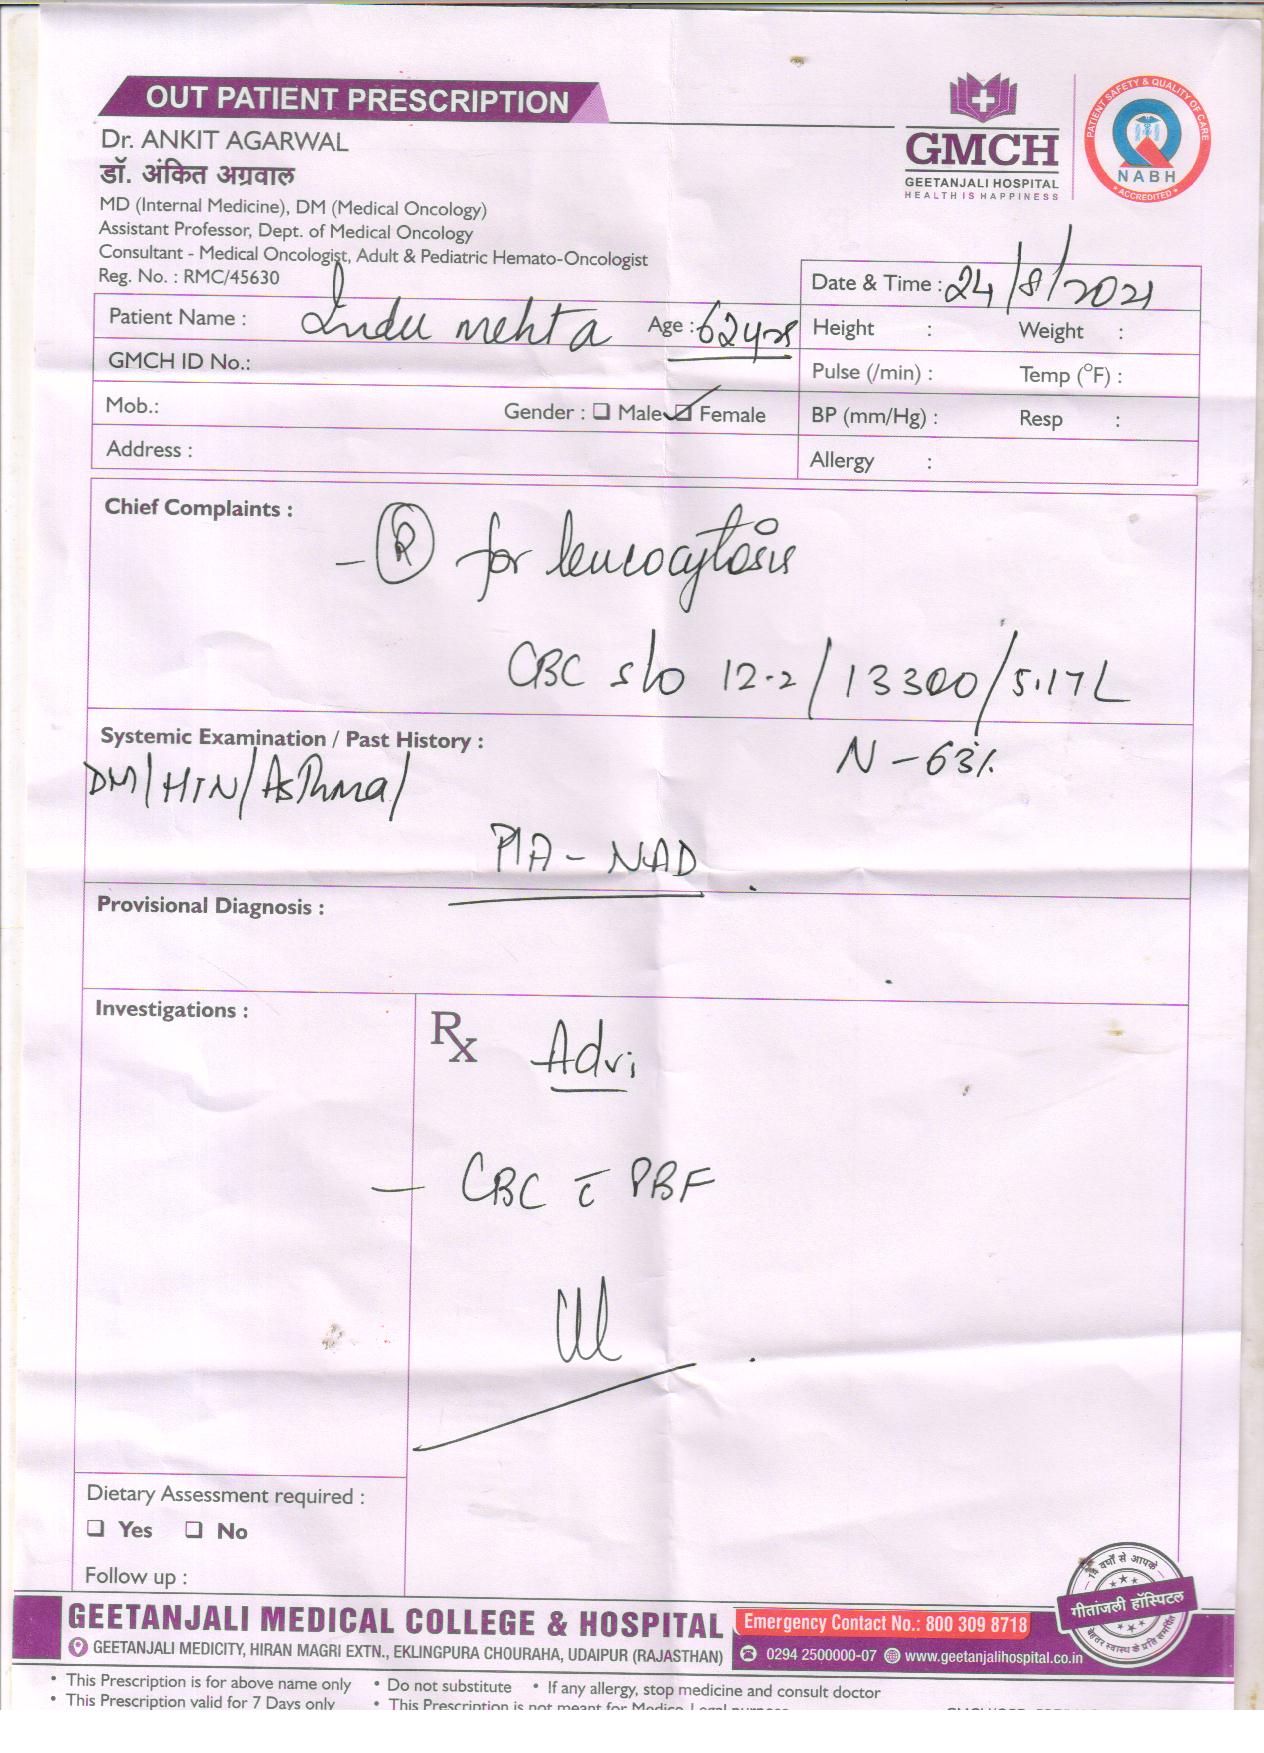 OUT PATIENT PRESCRIPTION
Dr. ANKIT AGARWAL
डॉ. अंकित अग्रवाल
MD (Internal Medicine), DM (Medical Oncology)
Assistant Professor, Dept. of Medical Oncology
Consultant - Medical Oncologist, Adult & Pediatric Hemato-Oncologist
Reg. No. : RMC/45630
GMCH
GEETANJALI HOSPITAL
HEALTH IS HAPPINESS
PATIENT SAFETY & QUALITY OF CARE
NABH
ACCREDITED
Date & Time : 24/8/2021
Patient Name : Indu mehta Age : 62yrs
Height : Weight :
GMCH ID No.:
Pulse (/min) : Temp (°F) :
Mob.: Gender : Male Female
BP (mm/Hg) : Resp :
Address :
Allergy :
Chief Complaints :
- R for leucocytosis
CBC s/o 12.2/13300/5.17L
Systemic Examination / Past History :
N - 63%
DM/HTN/Asthma/
P/A - NAD
Provisional Diagnosis :
Investigations :
Rx Adv:
- CBC c̄ PBF
Dietary Assessment required :
Yes No
Follow up :
गीतांजली हॉस्पिटल
GEETANJALI MEDICAL COLLEGE & HOSPITAL
Emergency Contact No.: 800 309 8718
GEETANJALI MEDICITY, HIRAN MAGRI EXTN., EKLINGPURA CHOURAHA, UDAIPUR (RAJASTHAN)
0294 2500000-07 www.geetanjalihospital.co.in
• This Prescription is for above name only • Do not substitute • If any allergy, stop medicine and consult doctor
• This Prescription valid for 7 Days only • This Prescription is not meant for Medico Legal purpose